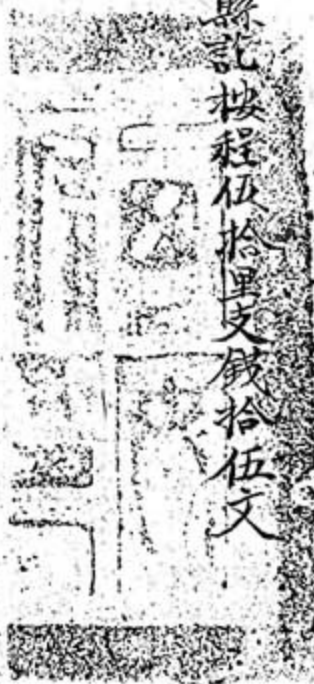 縣訖按程伍拾里支錢拾伍文